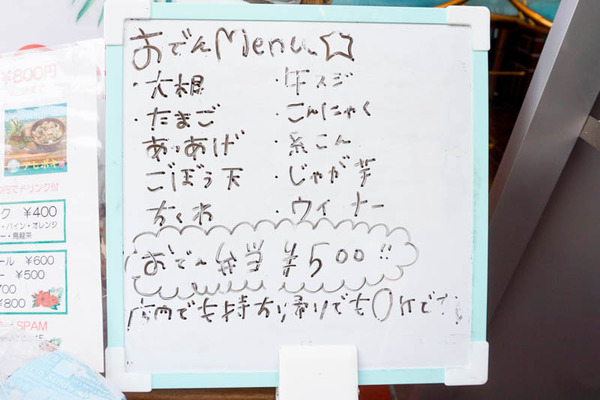 おでんMenu☆
・大根
・たまご
あつあげ
ごぼう天
ちくわ
・牛スジ
・こんにゃく
・糸こん
・じゃが芋
・ウイナー
おでん弁当 ¥500!!
店内でも持ち帰りでもOKです
円008¥
でドリンク付
ク ¥400
・パイン・オレンジ
ー・烏龍茶
ール ¥600
ー ¥500
700
¥800
SPAM